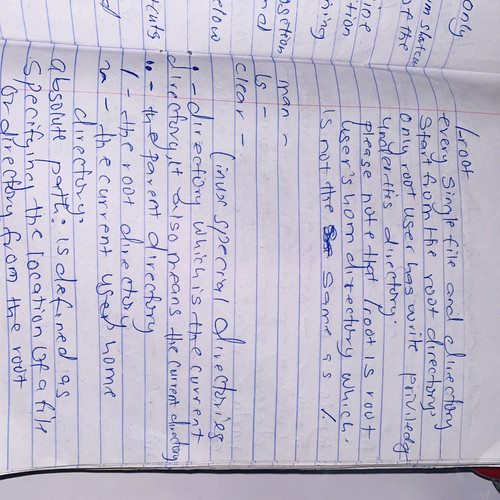 only
m system
of the
ition
ine.
ning
osection
and
elow
rents
d
/-root
every single file and directory
start from the root directory
only root user has write priviledge
under this directory.
please note that /root is root
user's hom directory which
is not the same as /.
man -
ls -
clear -
linux special directories
. - directory which is the current
directory, it also means the current directory
.. - the parent directory
/ - the root directory
~ - the current user home
directory.
absolute path: is defined as
specifying the location of a file
or directory from the root